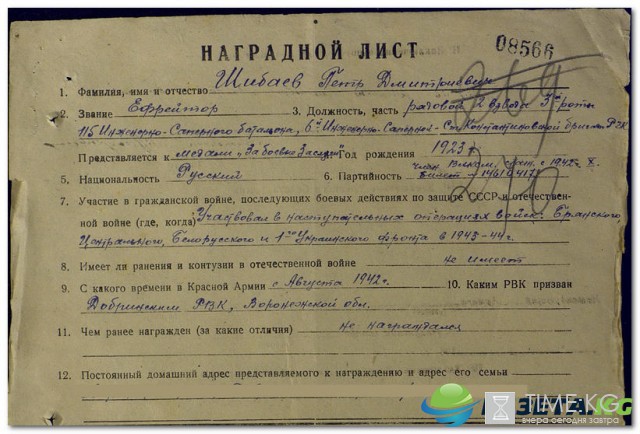 НАГРАДНОЙ ЛИСТ
08566
1. Фамилия, имя и отчество Шибаев Петр Дмитриевич
2. Звание Ефрейтор 3. Должность, часть рядовой 2 взвода 3й роты
115 Инженерно-Саперного батальона, 6й Инженерно-Саперной бригады РГК
Представляется к медали „За боевые Заслуги" Год рождения 1923г.
5. Национальность Русский 6. Партийность член ВЛКСМ с 1942г.
билет
7. Участие в гражданской войне, последующих боевых действиях по защите СССР и отечествен-
ной войне (где, когда) Участвовал в наступательных операциях войск Брянского,
Центрального, Белорусского и 1го Украинского фронта в 1943-44г.
8. Имеет ли ранения и контузии в отечественной войне не имеет
9. С какого времени в Красной Армии с Августа 1942г. 10. Каким РВК призван
Добринским РВК, Воронежской обл.
11. Чем ранее награжден (за какие отличия) не награждался
12. Постоянный домашний адрес представляемого к награждению и адрес его семьи
TIME.KG
вчера сегодня завтра